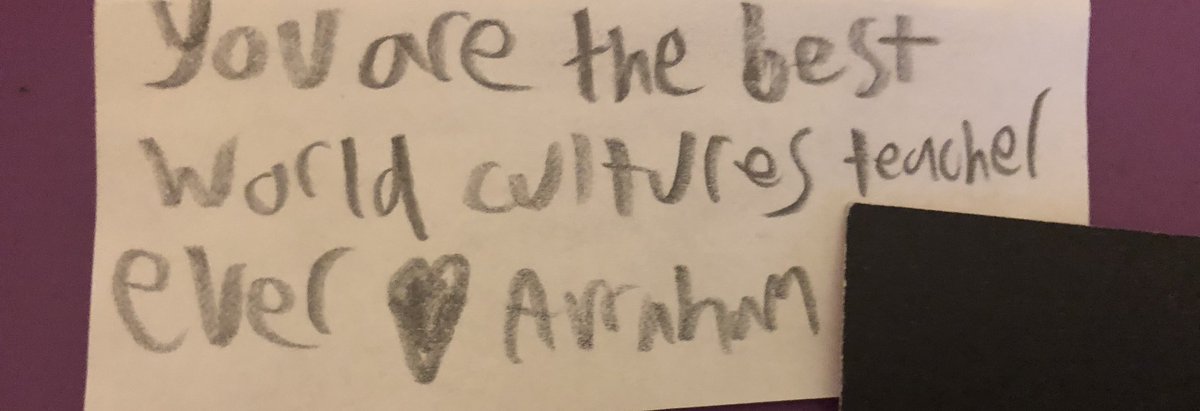 You are the best
World cultures teacher
ever ♥ Avraham